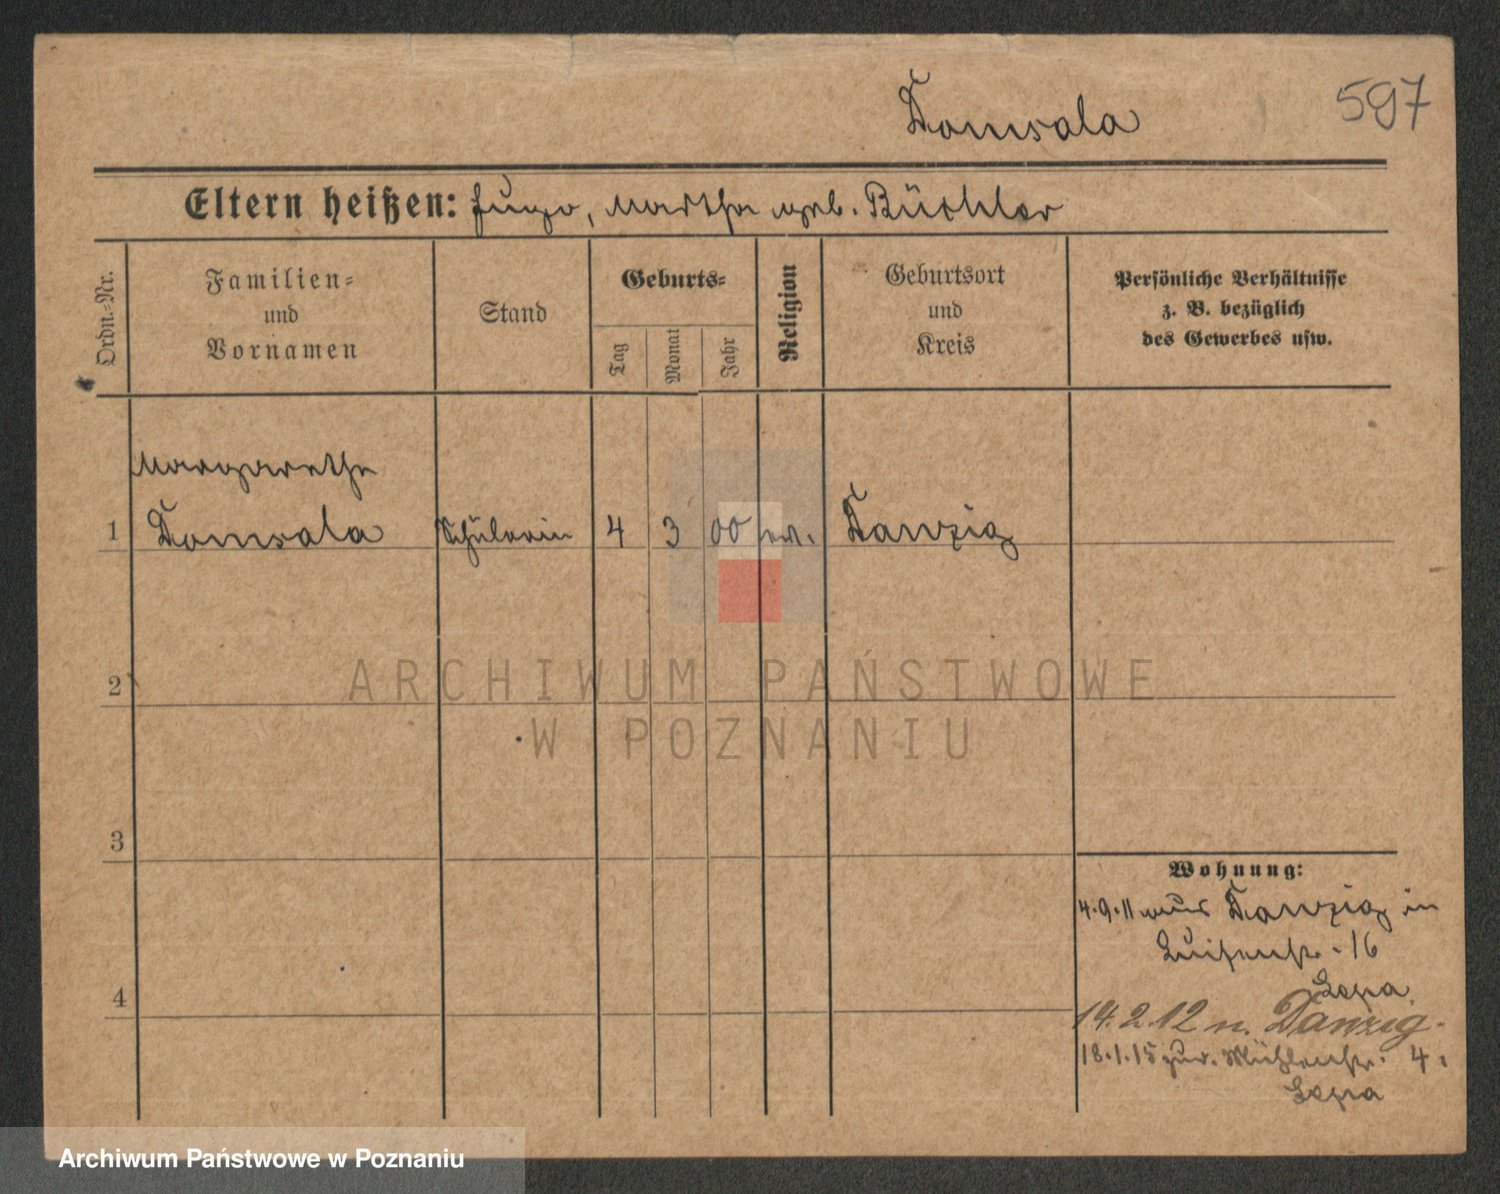 Domsala
597
Eltern heißen: Hugo, Martha geb. Büchler
Ordn.-Nr.
Familien-
und
Vornamen
Stand
Geburts-
Tag
Monat
Jahr
Religion
Geburtsort
und
Kreis
Persönliche Verhältnisse
z. B. bezüglich
des Gewerbes usw.
Margarethe
1 Domsala Schülerin 4 3 00 ev. Danzig
2
3
4
Wohnung:
4.9.11 aus Danzig in
Luisenstr. 16
14.2.12 n. Danzig.
18.1.15 zur. Mühlenstr. 4.
ARCHIWUM PAŃSTWOWE
W POZNANIU
Archiwum Państwowe w Poznaniu